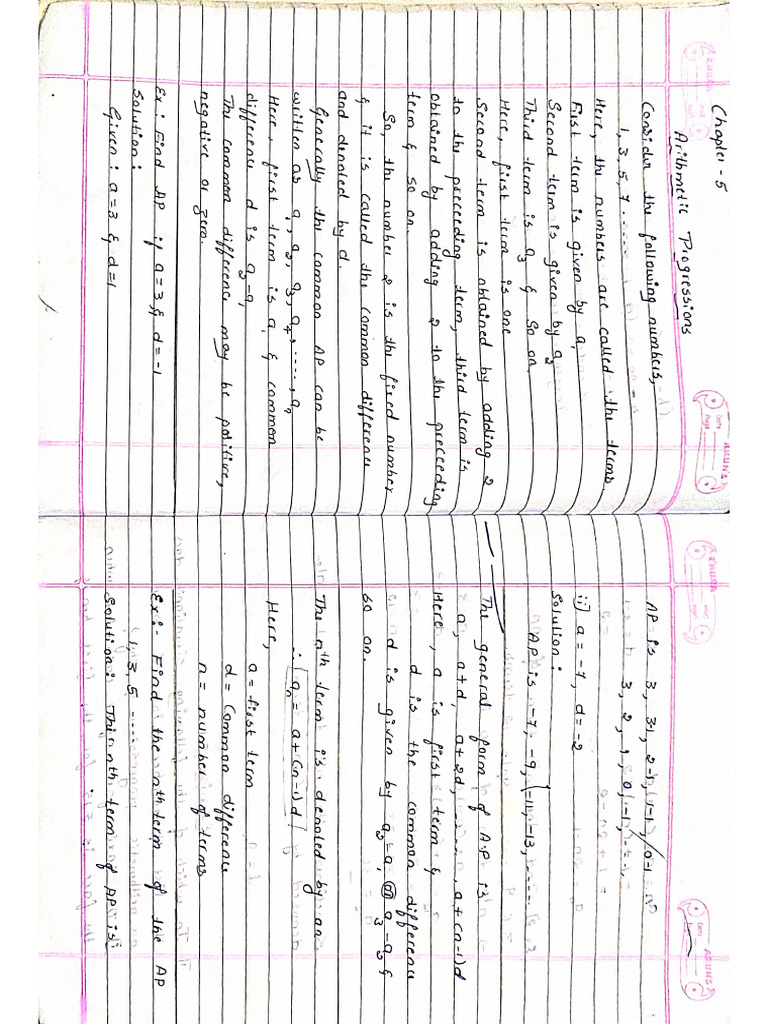 Chapter - 5
Arithmetic Progressions
Consider the following numbers,
1, 3, 5, 7 ......
Here, the numbers are called the terms.
First term is given by a₁
Second term is given by a₂
Third term is a₃ & so on.
Here, first term is one
Second term is obtained by adding 2
to the preceeding term, third term is
obtained by adding 2 to the preceeding
term & so on.
So, the number 2 is the fixed number
& it is called the common difference
and denoted by d.
Generally the common AP can be
written as a₁, a₂, a₃, a₄, ....., aₙ
Here, first term is a₁ & common
difference d is a₂-a₁
The common difference may be positive,
negative or zero.
Ex: Find AP if a=3, & d=-1
Solution:
Given: a=3 & d=1
AP is 3, 3-1, 2-1, 1-1, 0-1
3, 2, 1, 0, -1,
ii] a = -7, d = -2
Solution:
AP is -7, -9, -11, -13,
The general form of A.P is
a, a+d, a+2d, ..., a+(n-1)d
Here, a is first term &
d is the common difference
d is given by a₂-a₁ or a₃-a₂ &
so on.
The nth term is denoted by an
∴ aₙ = a+(n-1)d
Here,
a = first term
d = Common difference
n = number of terms
Ex:- Find the nth term of the AP
1, 3, 5 ......
Solution: The nth term of AP is: